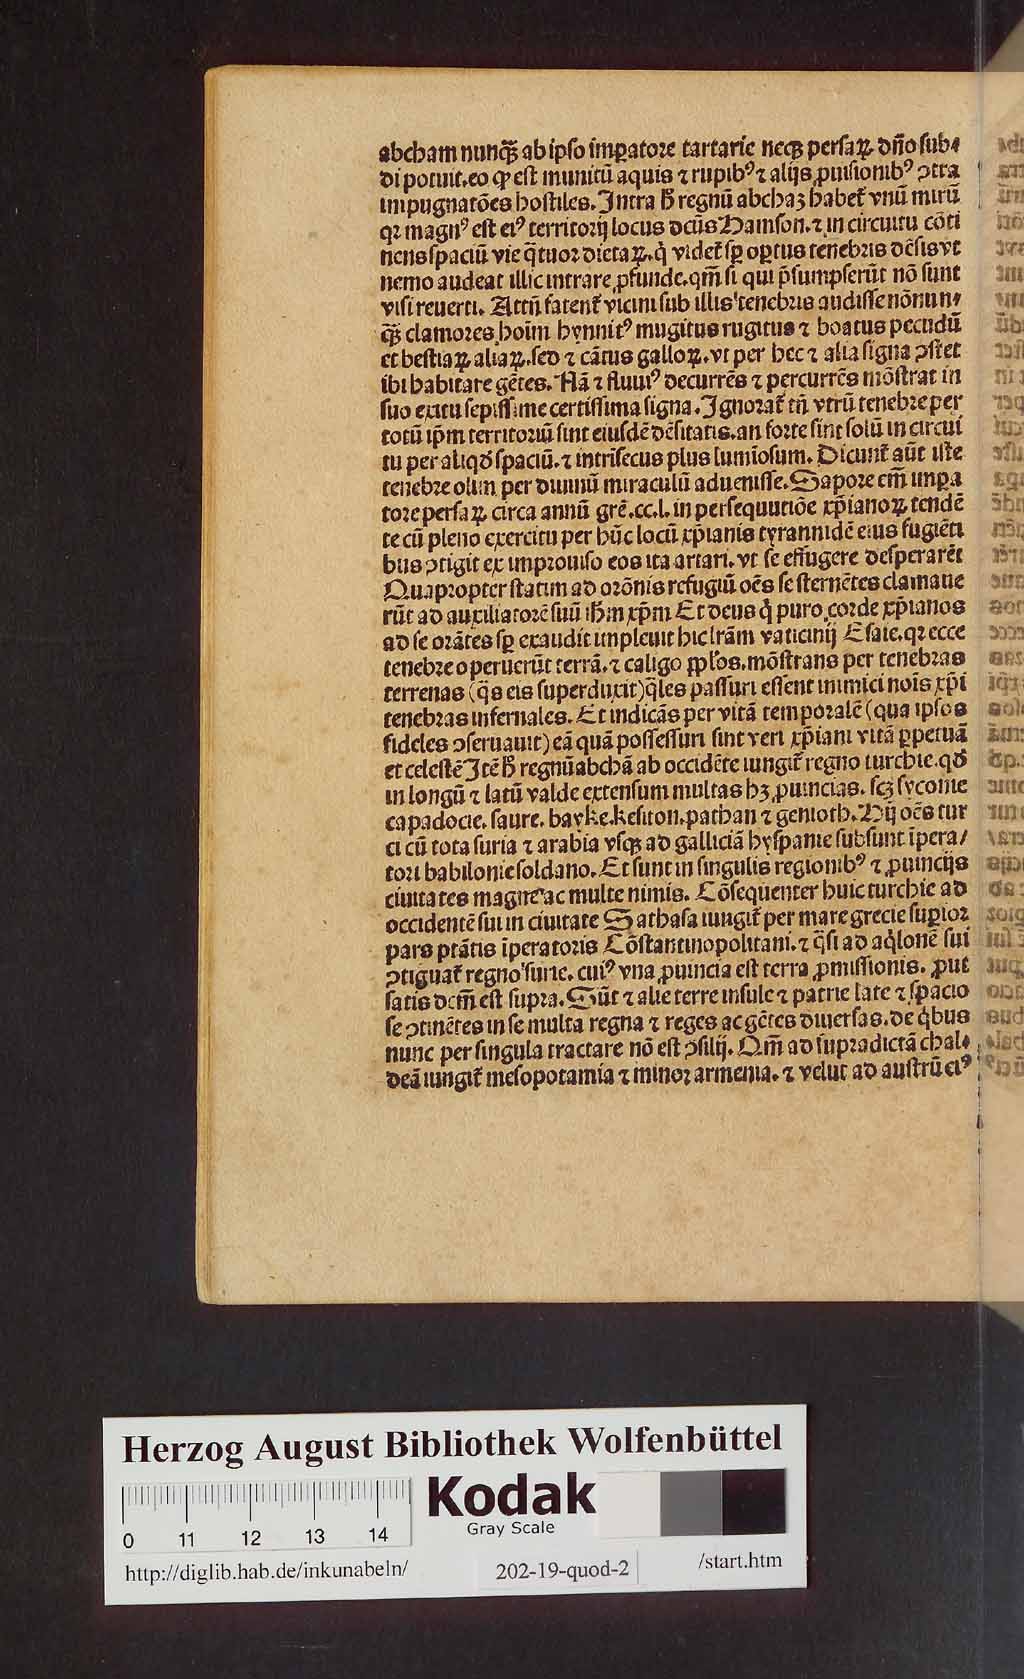 abcham nunq̄ꝫ ab ipso impatore tartarie necꝫ persaꝝ dño sub⸗
di potuit. eo ꝙ est munitū aquis ⁊ rupibꝰ ⁊ alijs ꝓuisionibꝰ ꝯtra
impugnatões hostiles. Intra h̄ regnū abchaꝫ habet̄ vnū mirū
qꝛ magnꝰ est eiꝰ territorij locus dc̄us Hamson. ⁊ in circuitu cōti
nens spaciū vie q̄tuor dietaꝝ. q̇ videt̄ sꝑ opertus tenebris dēsis vt
nemo audeat illic intrare ꝓfunde. qm̄ si qui p̄sumpserūt nō sunt
visi reuerti. Attn̄ fatent̄ vicini sub illis tenebris audisse nōnun⸗
q̄ꝫ clamores hoīm hynnitꝰ mugitus rugitus ⁊ boatus pecudū
et bestiaꝝ aliaꝝ. sed ⁊ cātus galloꝝ. vt per hec ⁊ alia signa ꝯstet
ibi habitare gētes. Nā ⁊ fluuiꝰ decurrēs ⁊ percurrēs mōstrat in
suo exitu sepissime certissima signa. Ignorat̄ tn̄ vtrū tenebre per
totū ip̄m territoriū sint eiusdē dēsitatis. an forte sint solū in circui
tu per aliqd̄ spaciū. ⁊ intrīsecus plus lumīosum. Dicunt̄ aūt iste
tenebre olim per diuinū miraculū aduenisse. Sapore em̄ impa
tore persaꝝ circa annū grē .cc.l. in persequutiōe xp̄ianoꝝ tendē
te cū pleno exercitu per hūc locū xp̄ianis tyrannidē eius fugiēti
bus ꝯtigit ex improuiso eos ita artari. vt se effugere desperarēt
Quapropter statim ad orōnis refugiū oēs se sternētes clamaue
rūt ad auxiliatorē suū ihm̄ xp̄m Et deus q̇ puro corde xp̄ianos
ad se orātes sꝑ exaudit impleuit hic lrām vaticinij Esaie. qꝛ ecce
tenebre operuerūt terrā. ⁊ caligo ppl̓os. mōstrans per tenebras
terrenas (q̄s eis superduxit) q̄les passuri essent inimici nōis xp̄i
tenebras infernales. Et indicās per vitā temporalē (qua ipsos
fideles ꝯseruauit) eā quā possessuri sint veri xp̄iani vitā ꝑpetuā
et celestē Itē h̄ regnū abchā ab occidēte iungit̄ regno turchie. qd̄
in longū ⁊ latū valde extensum multas hꝫ ꝓuincias. scꝫ syconie
capadocie. saure. bayke. kesiton. pathan ⁊ genioth. Hij oēs tur
ci cū tota suria ⁊ arabia vsqꝫ ad galliciā hyspanie subsunt īpera/
tori babilonie soldano. Et sunt in singulis regionibꝰ ⁊ ꝓuincijs
ciuitates magne ac multe nimis. Cōsequenter huic turchie ad
occidentē sui in ciuitate Sathasa iungit̄ per mare grecie suꝑior
pars ptātis īperatoris Cōstantinopolitani. ⁊ q̄si ad aq̇lonē sui
ꝯtiguat̄ regno surie. cuiꝰ vna ꝓuincia est terra ꝓmissionis. ꝓut
satis dcm̄ est supra. Sūt ⁊ alie terre insule ⁊ patrie late ⁊ spacio
se ꝯtinētes in se multa regna ⁊ reges ac gētes diuersas. de q̇bus
nunc per singula tractare nō est ꝯsilij. Qm̄ ad supradictā chal⸗
deā iungit̄ mesopotamia ⁊ minor armenia. ⁊ velut ad austrū eiꝰ
Herzog August Bibliothek Wolfenbüttel
0 11 12 13 14
Kodak
Gray Scale
http://diglib.hab.de/inkunabeln/ 202-19-quod-2 /start.htm